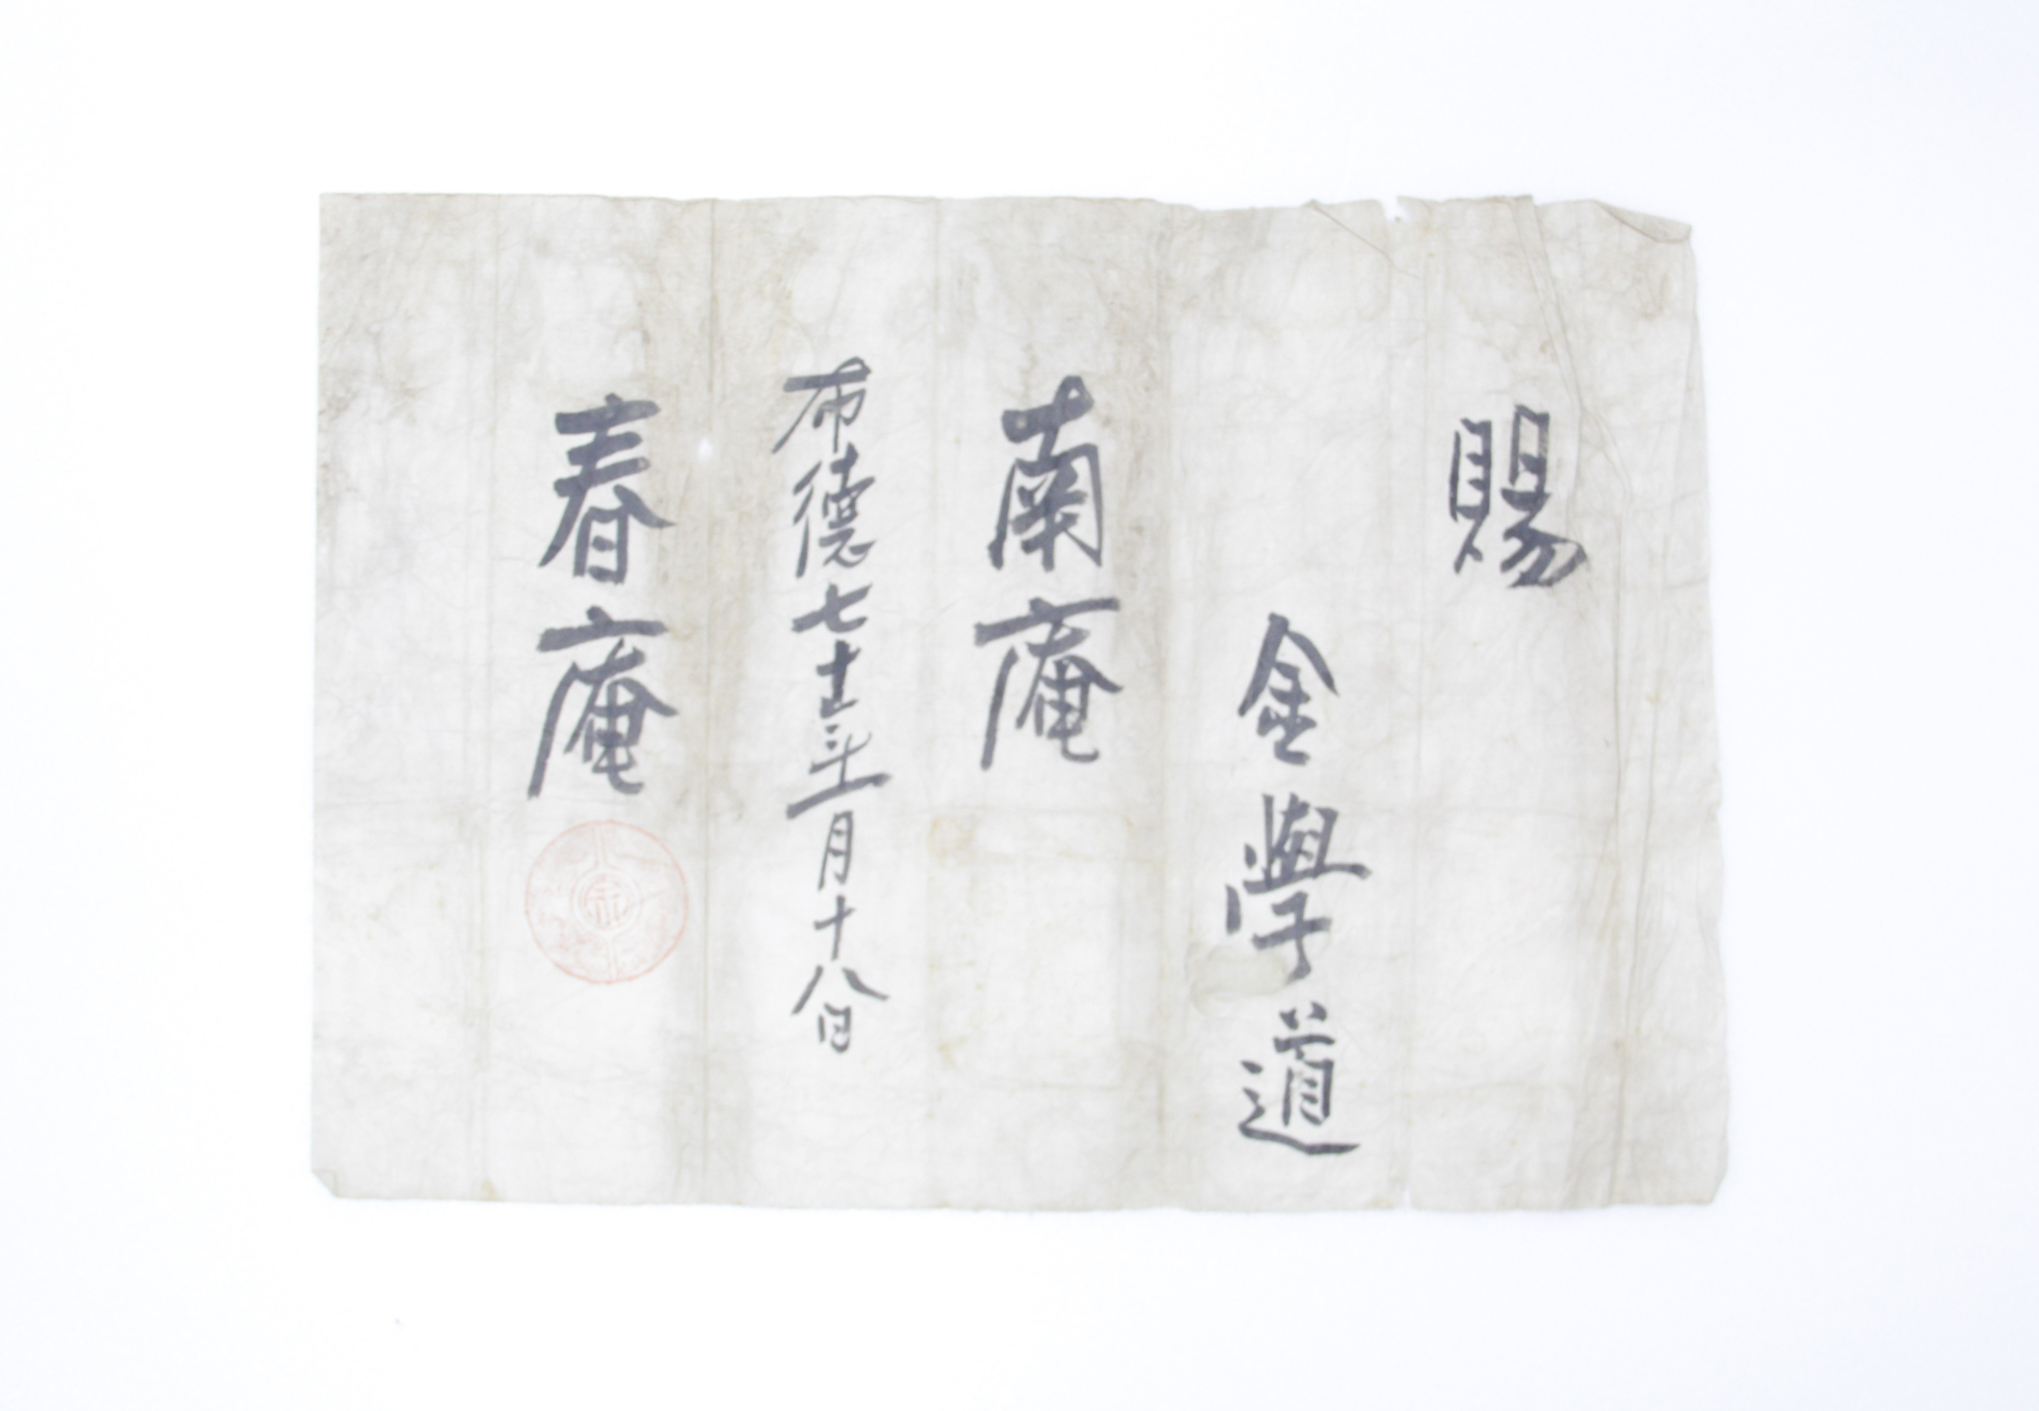 賜
金學道
南庵
布德七十五年一月十八日
春庵